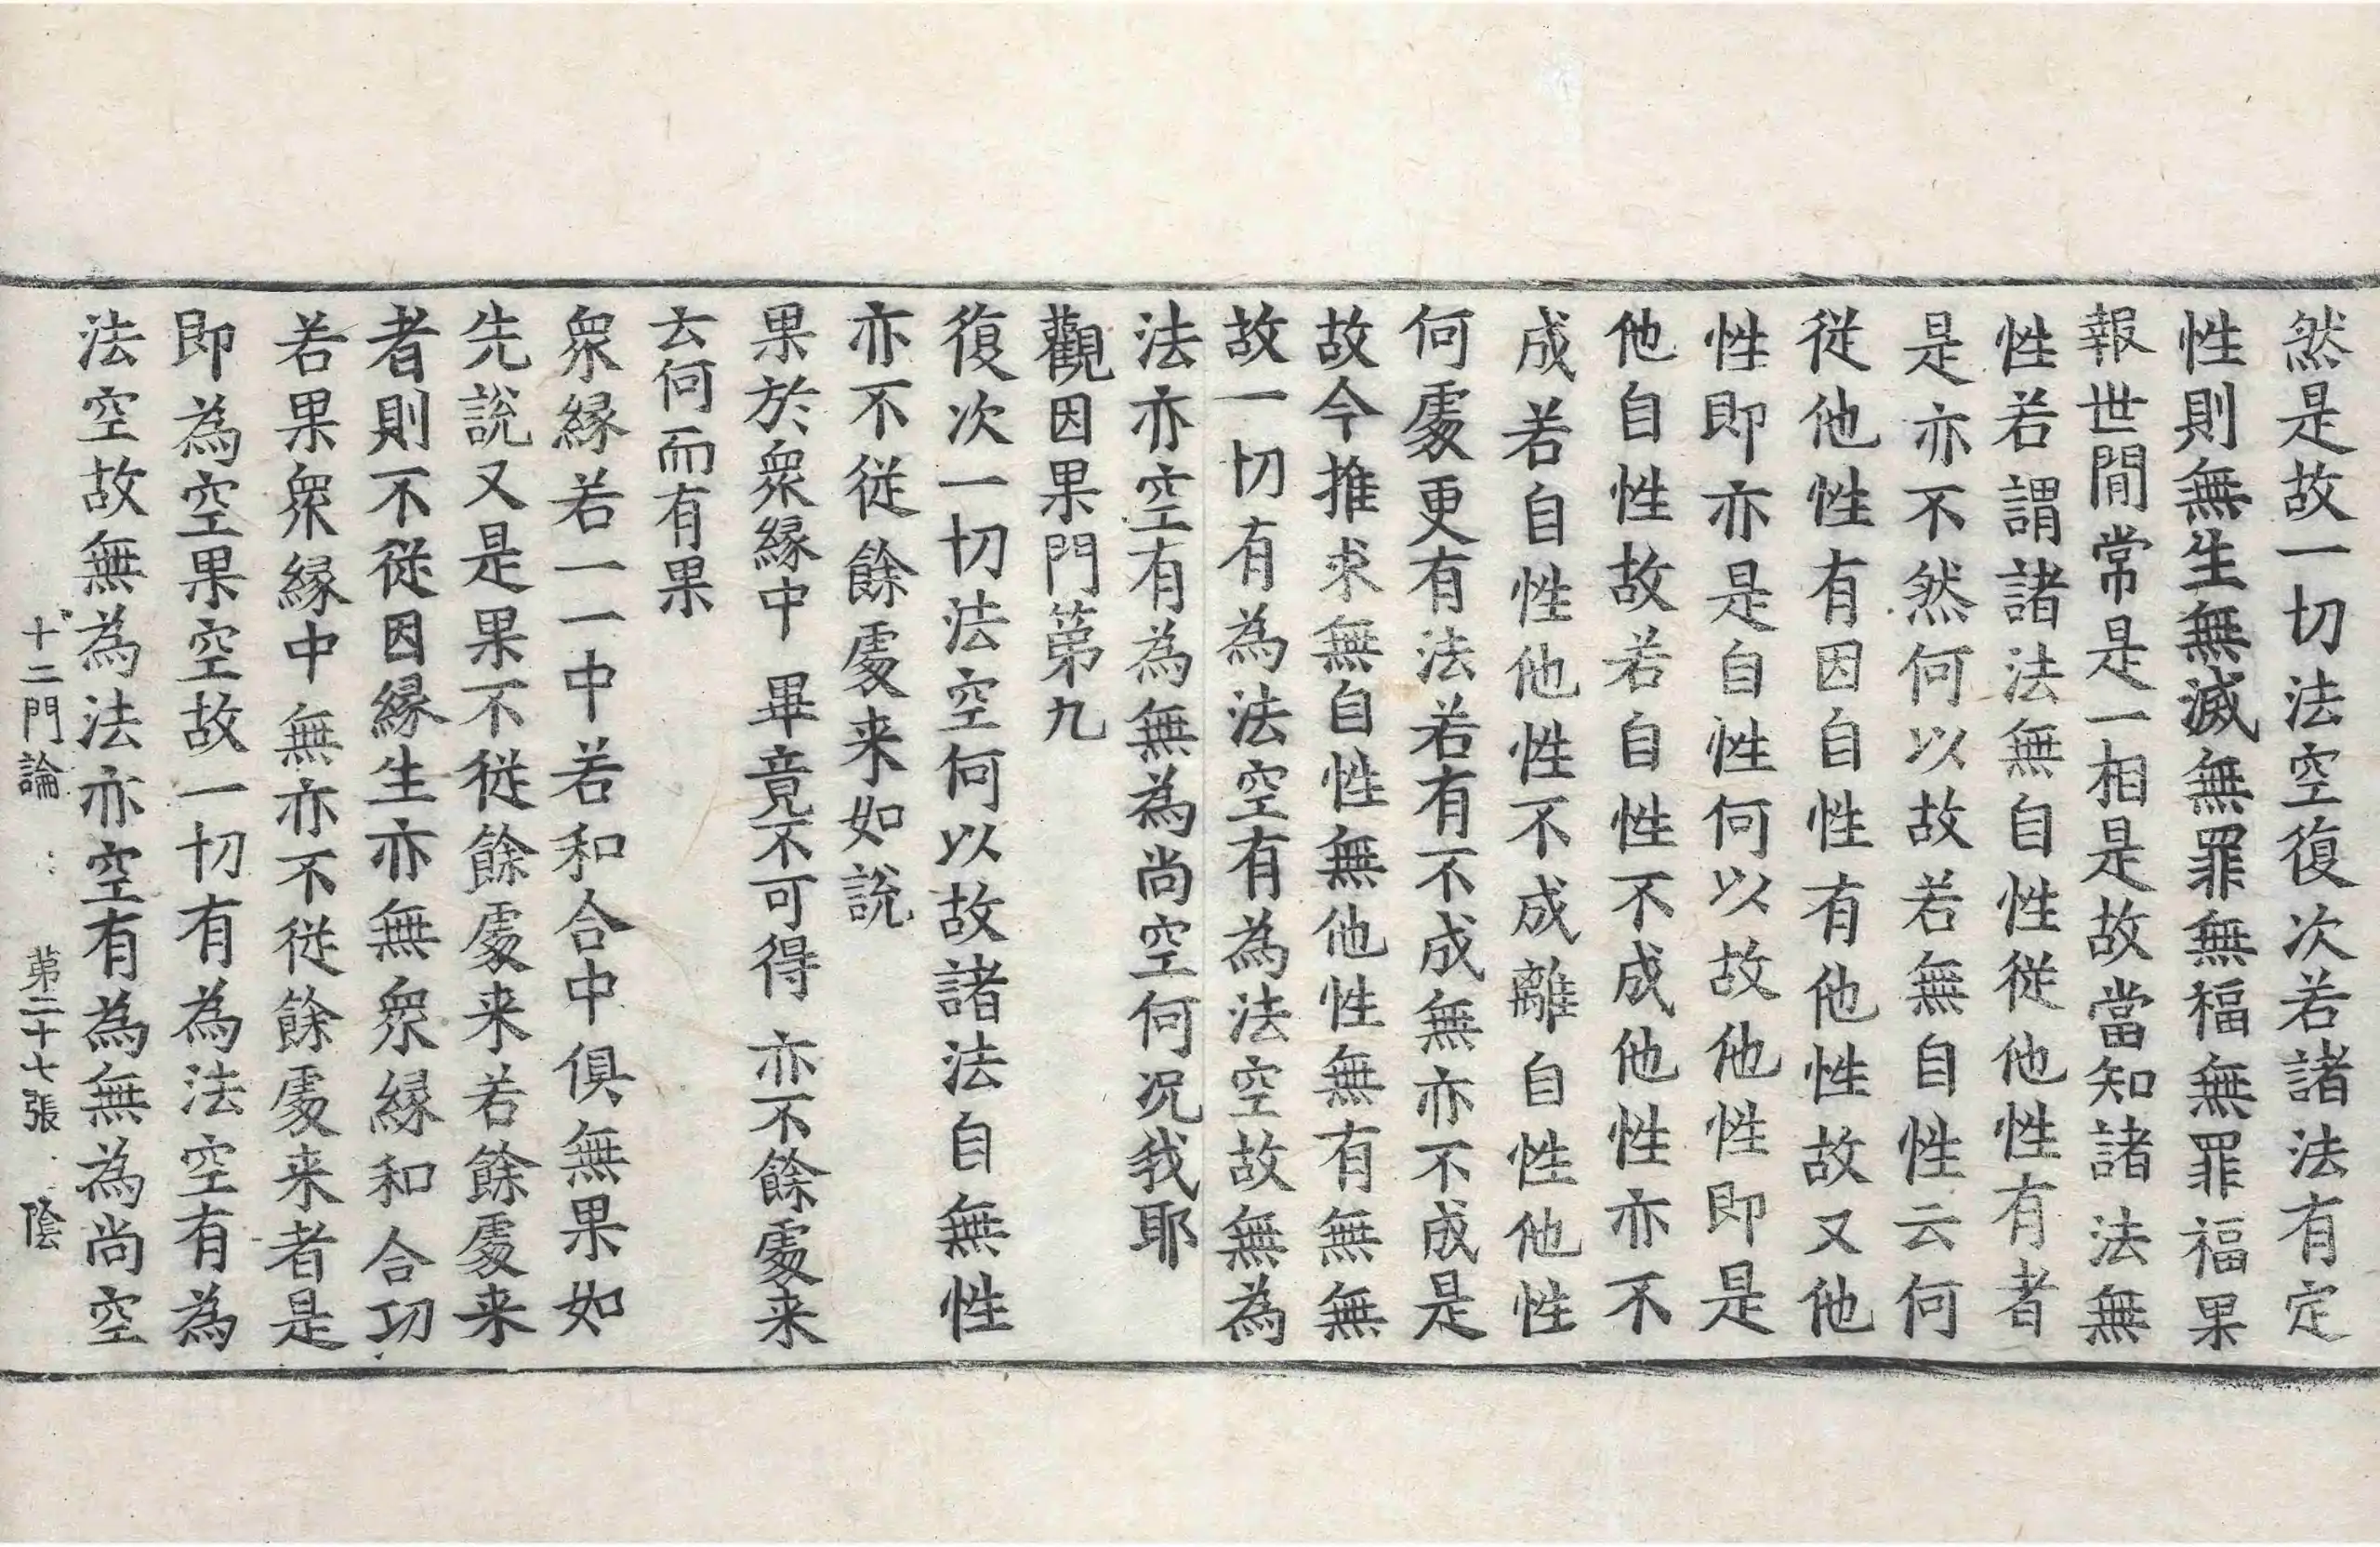 然是故一切法空復次若諸法有定
性則無生無滅無罪無福無罪福果
報世間常是一相是故當知諸法無
性若謂諸法無自性從他性有者
是亦不然何以故若無自性云何
從他性有因自性有他性故又他
性即亦是自性何以故他性即是
他自性故若自性不成他性亦不
成若自性他性不成離自性他性
何處更有法若有不成無亦不成是
故今推求無自性無他性無有無無
故一切有為法空有為法空故無為
法亦空有為無為尚空何况我耶
觀因果門第九
復次一切法空何以故諸法自無性
亦不從餘處来如說
果於衆緣中 畢竟不可得 亦不餘處来
云何而有果
衆緣若一一中若和合中俱無果如
先說又是果不從餘處来若餘處来
者則不從因緣生亦無衆緣和合功
若果衆緣中無亦不從餘處来者是
即為空果空故一切有為法空有為
法空故無為法亦空有為無為尚空
十二門論 第二十七張 陰